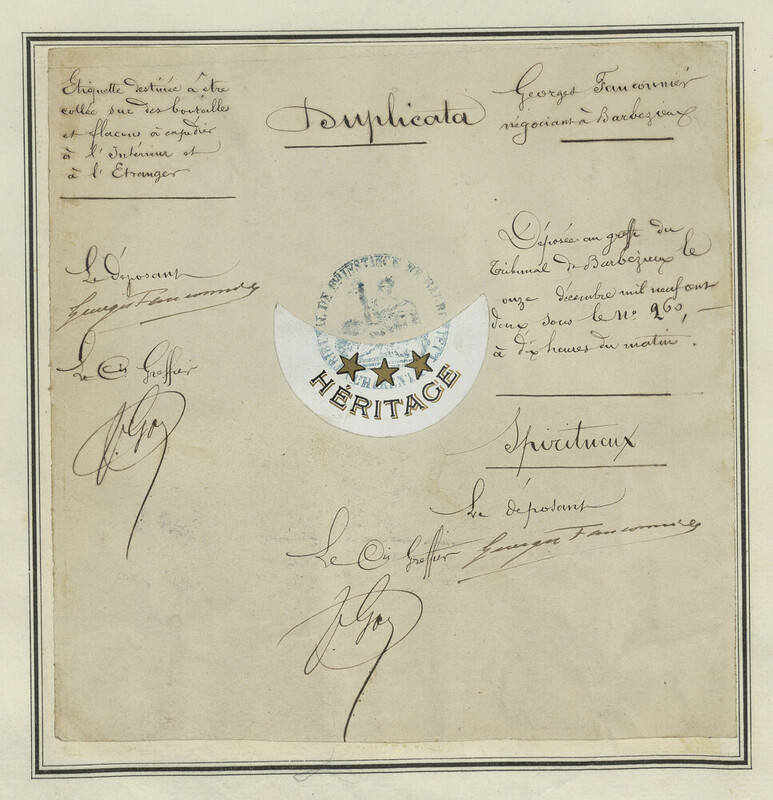 Etiquette destinée à être
collée sur des bouteille
et flacons à expédier
à l'Intérieur et
à l'Etranger
Duplicata
Georges Fauconnier
négociant à Barbezieux
Le déposant
Georges Fauconnier
Le Cis Greffier
Déposée au greffe du
Tribunal de Barbezieux le
onze décembre mil neuf cent
deux sous le No 260,
à dix heures du matin.
HÉRITAGE
Spiritueux
Le déposant
Georges Fauconnier
Le Cis Greffier